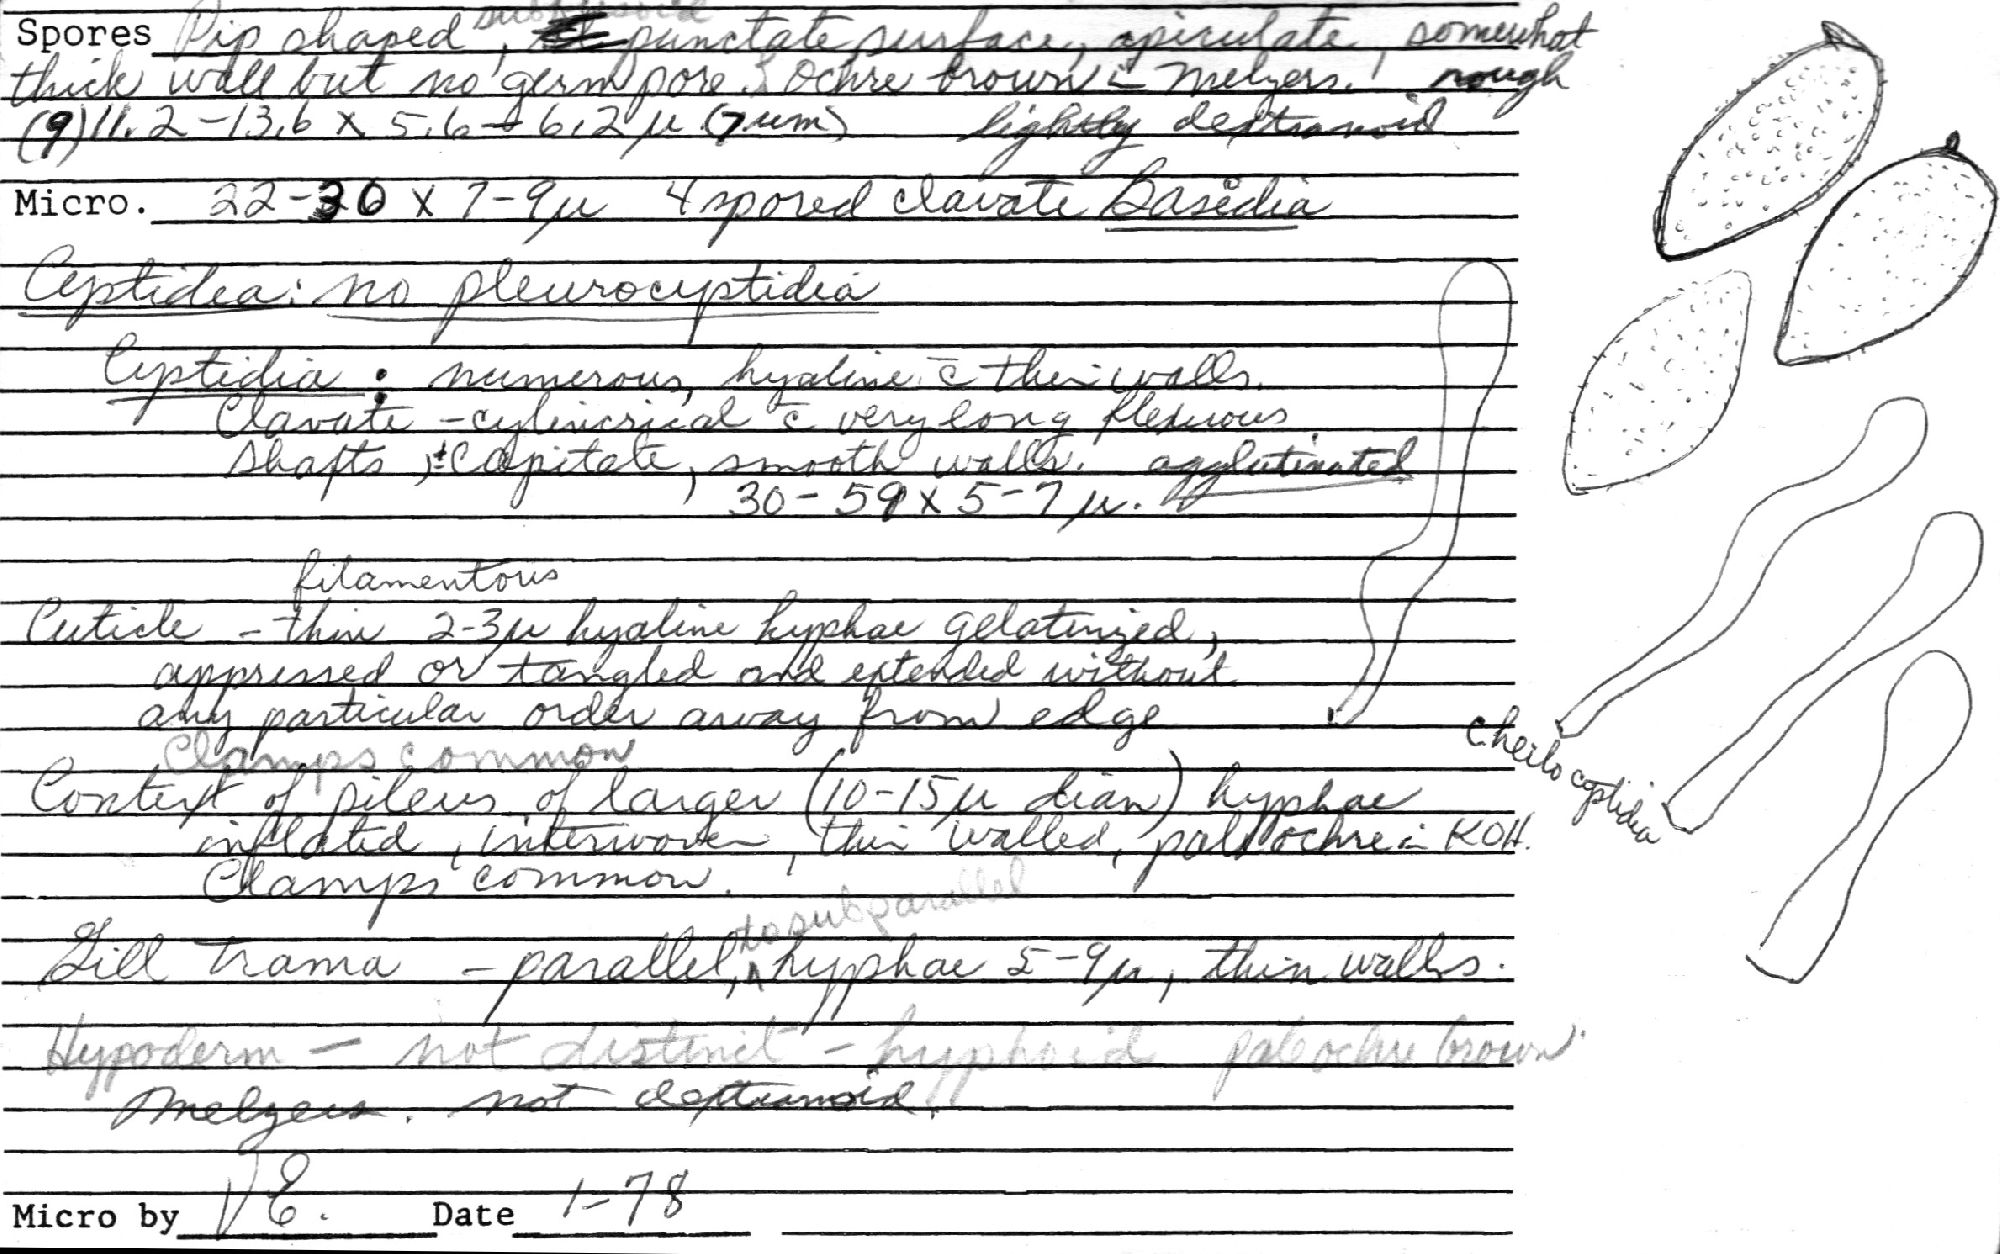 Spores Pip shaped, punctate surface, apiculate, somewhat
thick wall but no germ pore. Ochre brown in Melzers. rough
(9)11.2-13.6 x 5.6-6.2µ (7um) lightly dextranoid
Micro. 22-30 x 7-9µ 4 spored clavate Basidia
Cyptidia: no pleurocyptidia
Cyptidia: numerous, hyaline c̄ thin walls.
Clavate - cylincrical c̄ very long flexuous
shafts, ±capitate, smooth walls. agglutinated
30-59 x 5-7µ.
filamentous
Cuticle - thin 2-3µ hyaline hyphae gelatinized,
appressed or tangled and extended without
any particular order away from edge
Clamps common
Context of pileus of larger (10-15µ diam) hyphae
inflated, interwoven, thin walled, pale ochre in KOH.
Clamps common.
to subparallel
Gill Trama - parallel, ∧ hyphae 5-9µ, thin walls.
Hypoderm - not distinct - hyphoid pale ochre brown.
Melzers. not dextranoid.
Micro by VE. Date 1-78
Cheilocyptidia